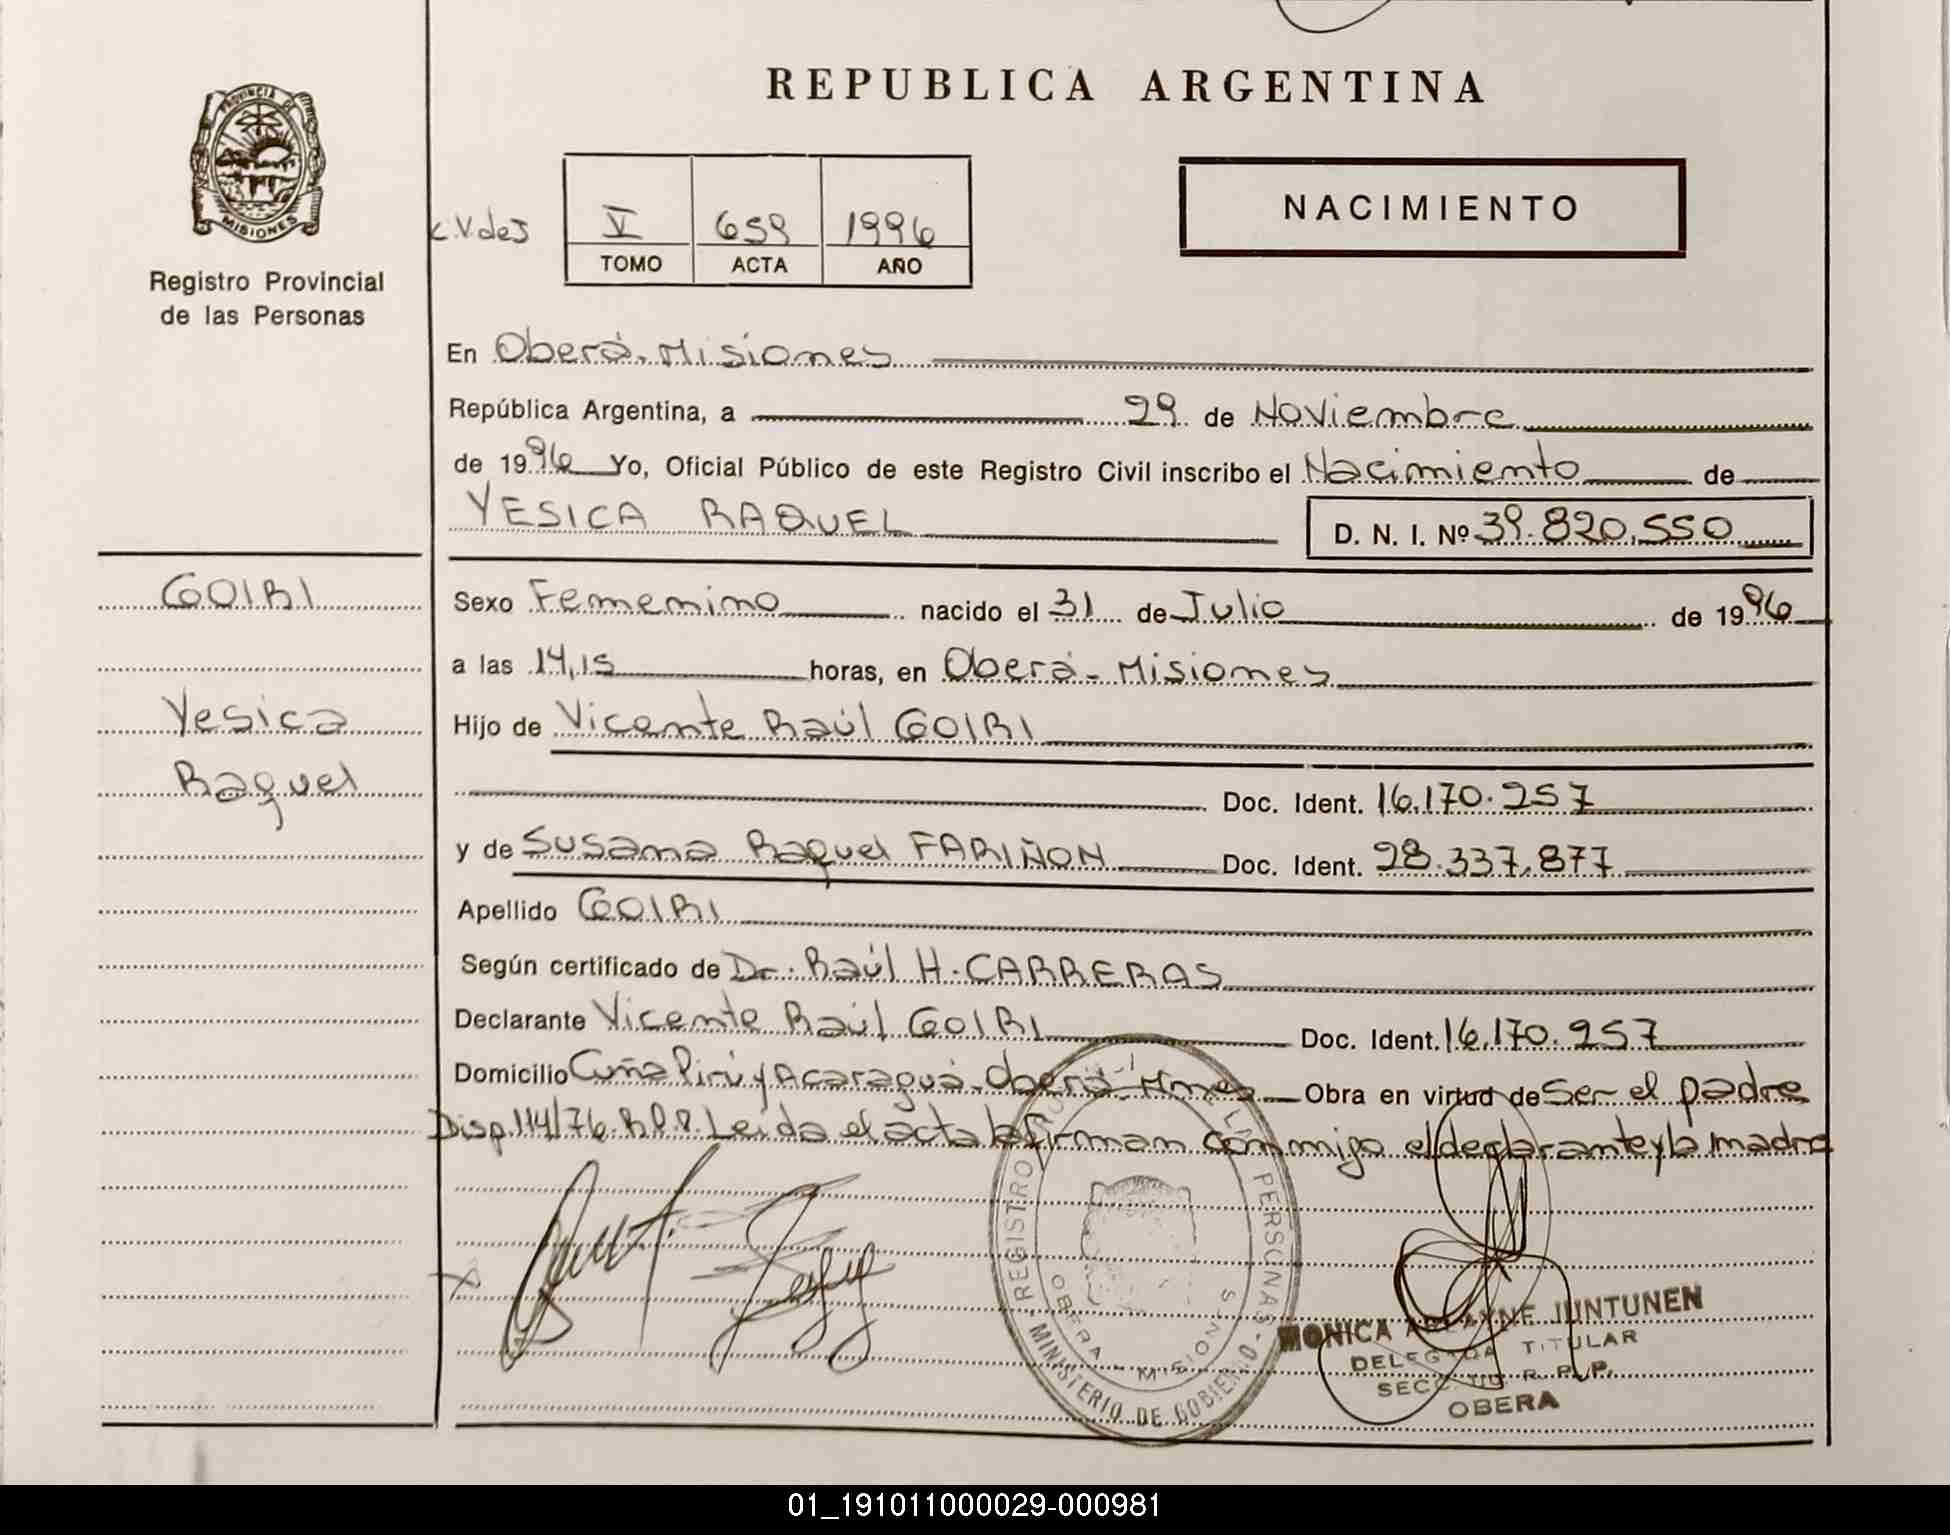 REPUBLICA ARGENTINA
PROVINCIA DE
MISIONES
Registro Provincial
de las Personas
c.V.des
V 659 1996
TOMO ACTA AÑO
NACIMIENTO
En Oberá-Misiones
República Argentina, a 29 de Noviembre
de 1996 Yo, Oficial Público de este Registro Civil inscribo el Nacimiento de
YESICA RAQUEL D. N. I. Nº 39.820.550
GOIRI
Yesica
Raquel
Sexo Femenino nacido el 31 de Julio de 1996
a las 14,15 horas, en Oberá-Misiones
Hijo de Vicente Raúl GOIRI
Doc. Ident. 16.170.257
y de Susana Raquel FARIÑON Doc. Ident. 28.337.877
Apellido GOIRI
Según certificado de Dr. Raúl H. CARRERAS
Declarante Vicente Raúl GOIRI Doc. Ident. 16.170.257
Domicilio Cuña Pirú y Acaraguá-Oberá-Mnes Obra en virtud de Ser el padre
Disp.114/76.R.P.P. Leída el acta la firman conmigo el declarante y la madre
REGISTRO PERSONAS
OBERA - MISIONES
MINISTERIO DE GOBIERNO
MONICA JUNTUNEN
DELEGADA TITULAR
SECC. R. P. P.
OBERA
01_191011000029-000981